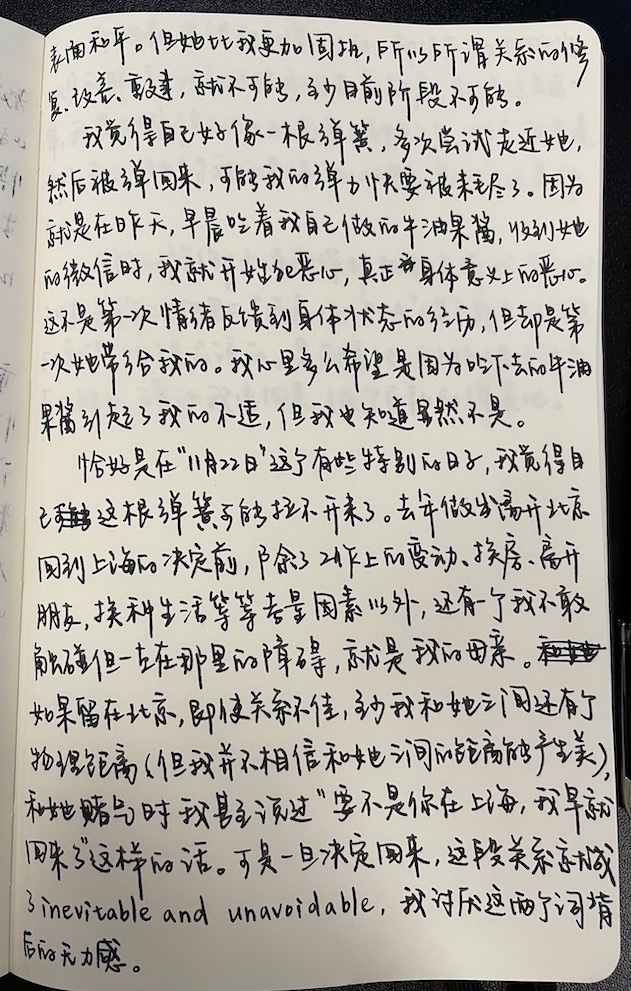 表面和平。但她比我更加固执，所以所谓关系的修
复、改善、重建，就不可能，至少目前阶段不可能。
我觉得自己好像一根弹簧，多次尝试走近她，
然后被弹回来，可能我的弹力快要被耗尽了。因为
就是在昨天，早晨吃着我自己做的牛油果酱，收到她
的微信时，我就开始犯恶心，真正身体意义上的恶心。
这不是第一次情绪反馈到身体状态的经历，但却是第
一次她带给我的。我心里多么希望是因为吃下去的牛油
果酱引起了我的不适，但我也知道显然不是。
恰好是在"11月22日"这个有些特别的日子，我觉得自
己这根弹簧可能拉不开来了。去年做出离开北京
回到上海的决定前，除了工作上的变动、换房、离开
朋友，换种生活等等考量因素以外，还有一个我不敢
触碰但一直在那里的障碍，就是我的母亲。
如果留在北京，即使关系不佳，至少我和她之间还有个
物理距离（但我并不相信和她之间的距离能产生美），
和她赌气时我甚至说过"要不是你在上海，我早就
回来了"这样的话。可是一旦决定回来，这段关系就成
了inevitable and unavoidable，我讨厌这两个词背
后的无力感。